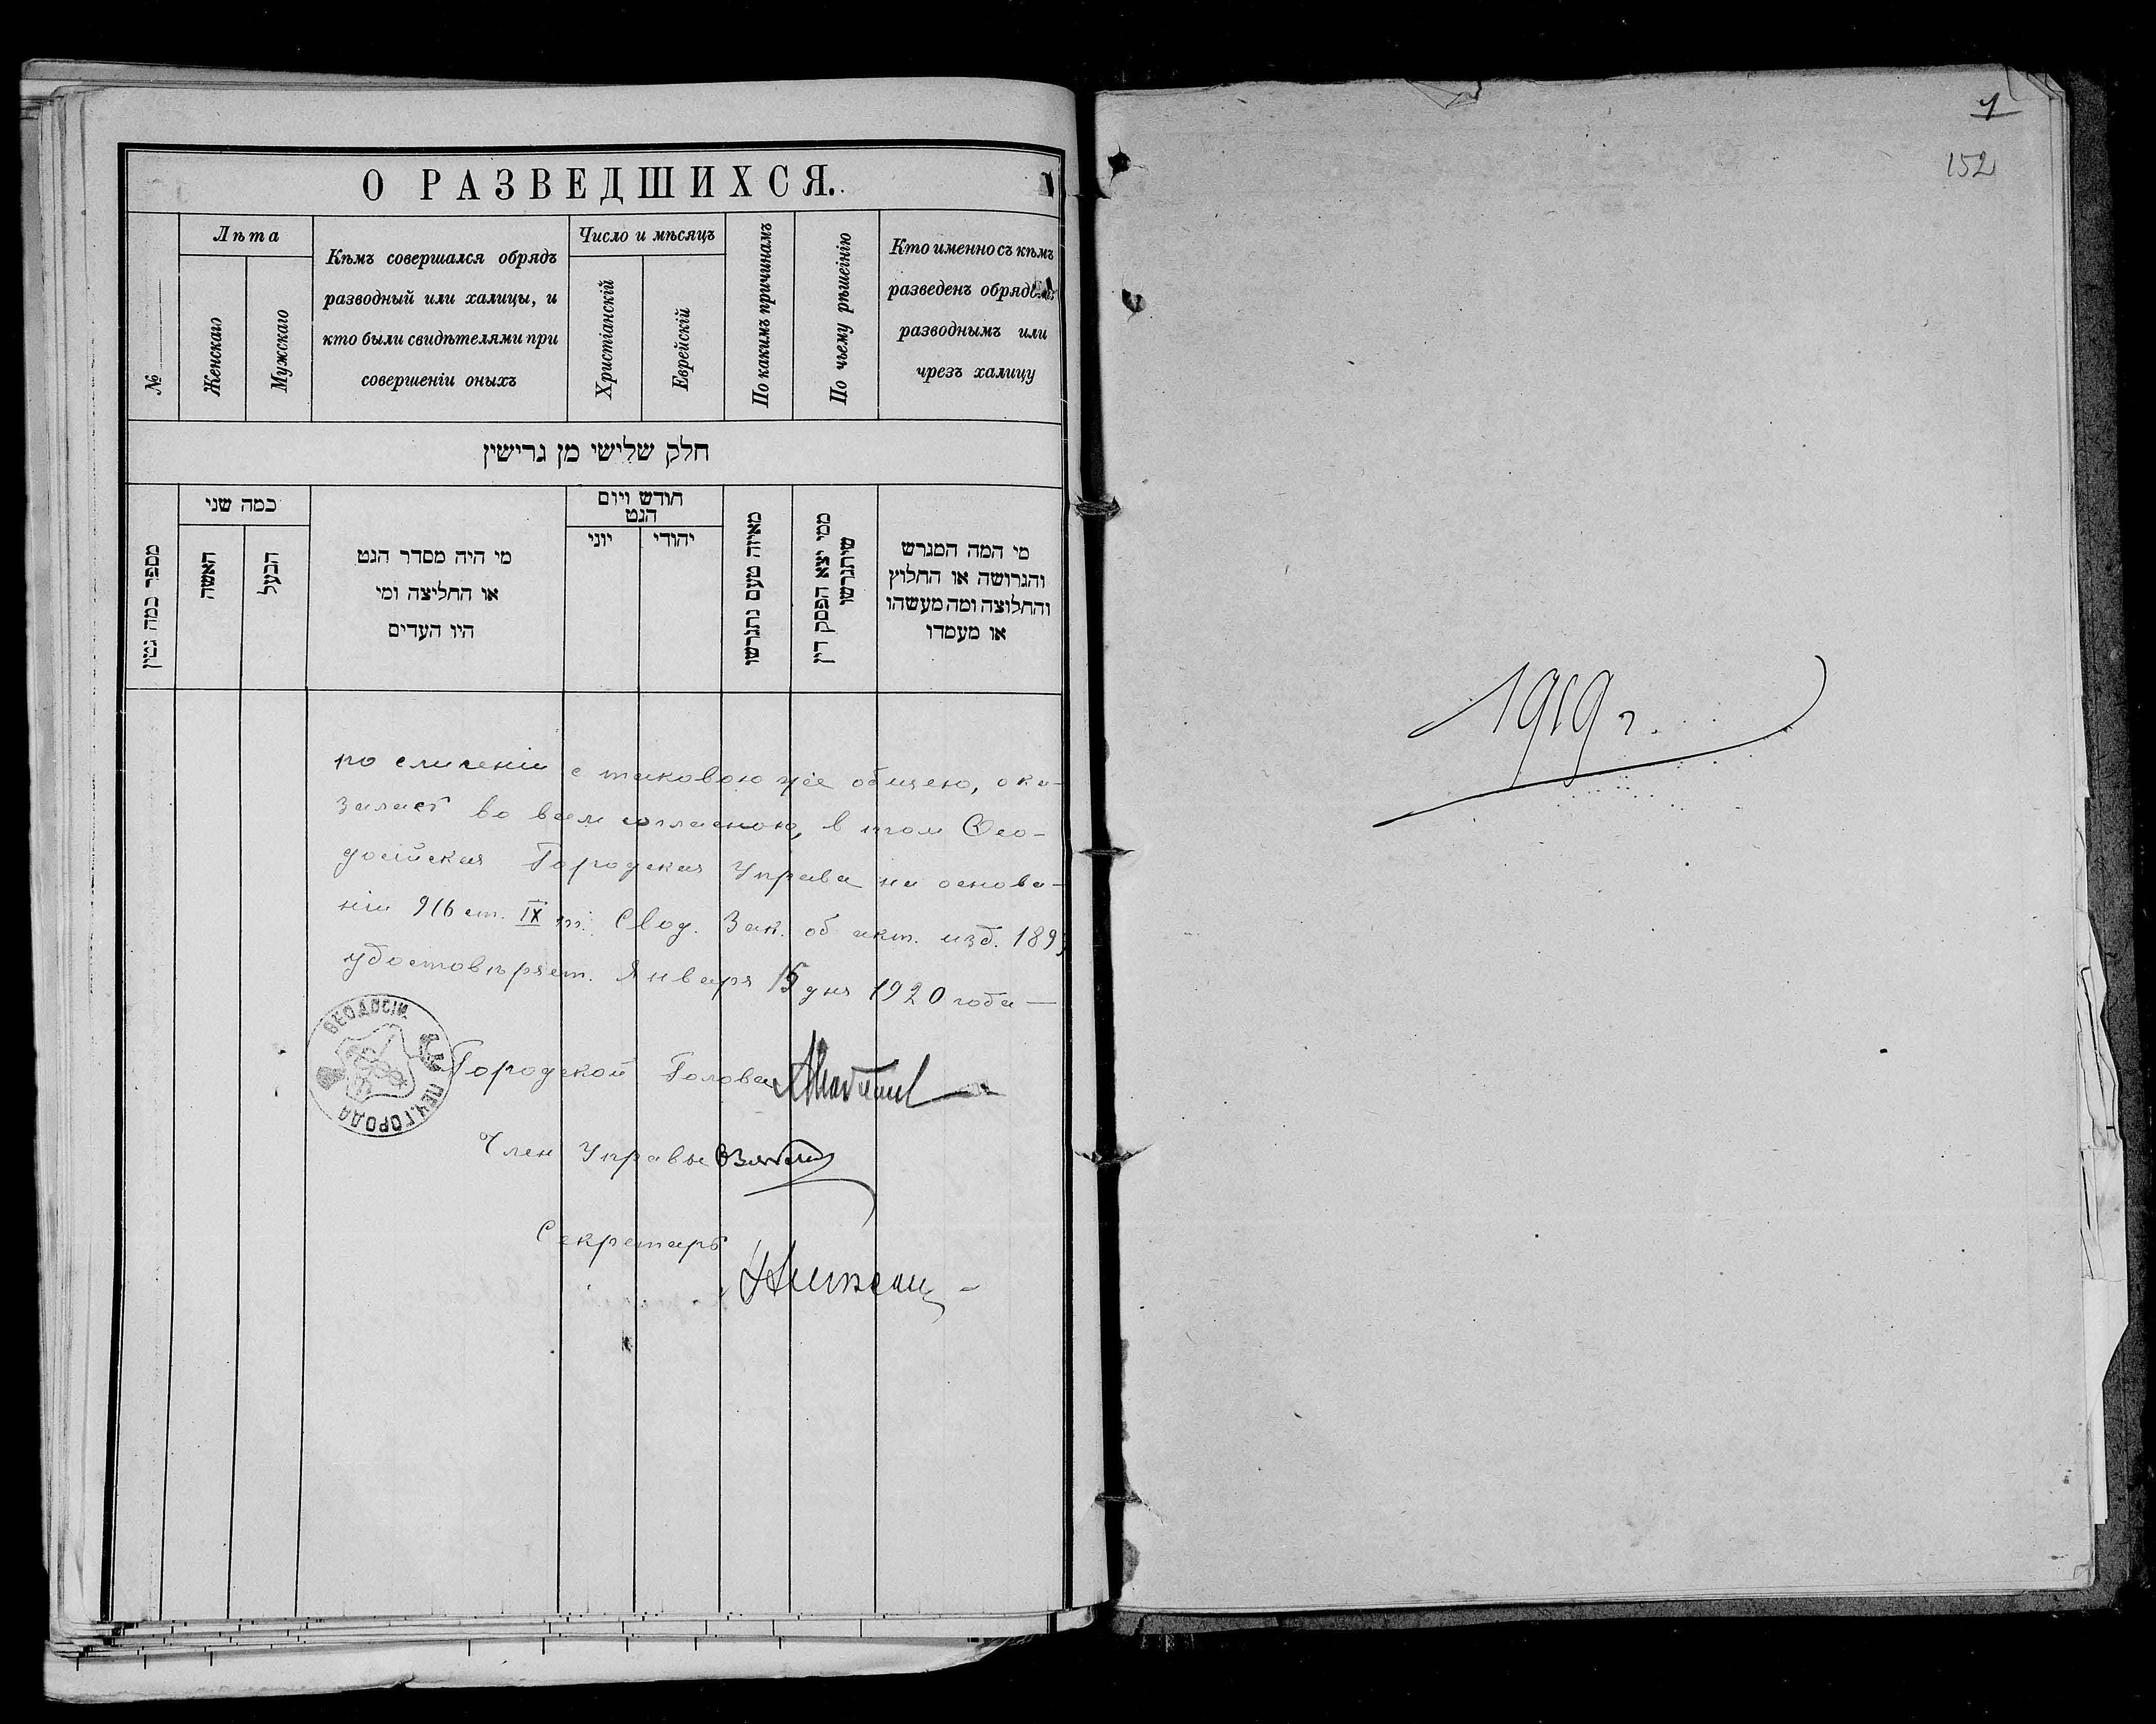 О РАЗВЕДШИХСЯ.
№
Лѣта
Женскаго
Мужскаго
Кѣмъ совершался обрядъ
разводный или халицы, и
кто были свидѣтелями при
совершеніи оныхъ
Число и мѣсяцъ
Христіанскій
Еврейскій
По какимъ причинамъ
По чьему рѣшенію
Кто именно съ кѣмъ
разведенъ обрядомъ
разводнымъ или
чрезъ халицу
חלק שלישי מן גרישין
מספר כמה גטין
כמה שני
האשה
הבעל
מי היה מסדר הגט
או החליצה ומי
היו העדים
חודש ויום
הגט
יוני
יהודי
מאיזה טעם נתגרשו
ממי יצא הפסק דין
שיתגרשו
מי המה המגרש
והגרושה או החלוץ
והחלוצה ומה מעשהו
או מעמדו
по сличеніи с таковою же общею, ока-
залась во всем согласною, в том Ѳео-
досійская Городская Управа на основа-
ніи 916 ст. IX т. Свод. Зак. об акт. изд. 1899
удостовѣряет. Января 15 дня 1920 года —
ѲЕОДОСІЙ
ПЕЧ. ГОРОДА
Городской Голова
Член Управы
Секретарь
1
152
1919 г.